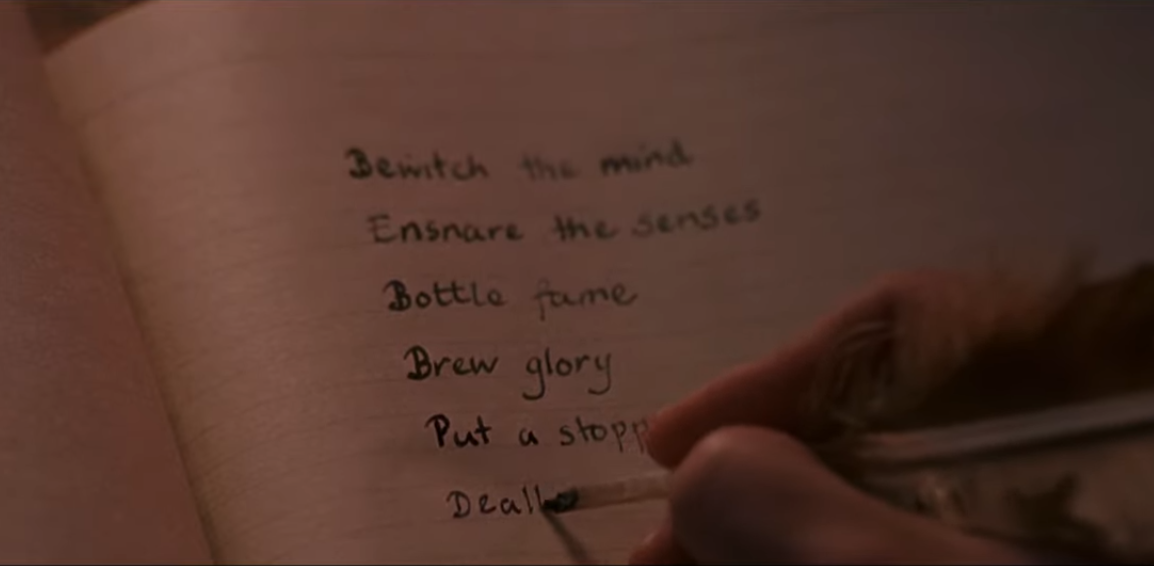 Bewitch the mind
Ensnare the senses
Bottle fame
Brew glory
Put a stopp
Dea